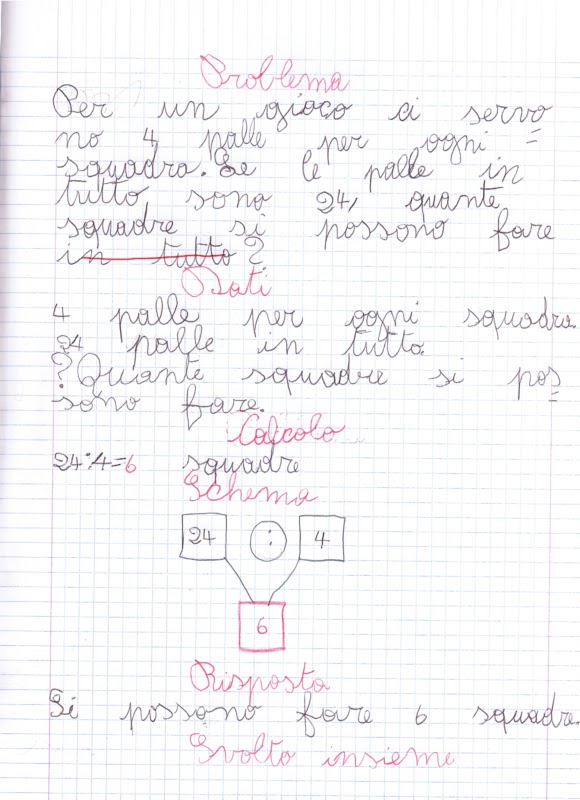 Problema
Per un gioco ci servo
no 4 palle per ogni =
squadra. Se le palle in
tutto sono 24, quante
squadre si possono fare
in tutto?
Dati
4 palle per ogni squadra.
24 palle in tutto.
? Quante squadre si pos=
sono fare.
Calcolo
24:4=6 squadre
Schema
24 : 4
6
Risposta
Si possono fare 6 squadre.
Svolto insieme